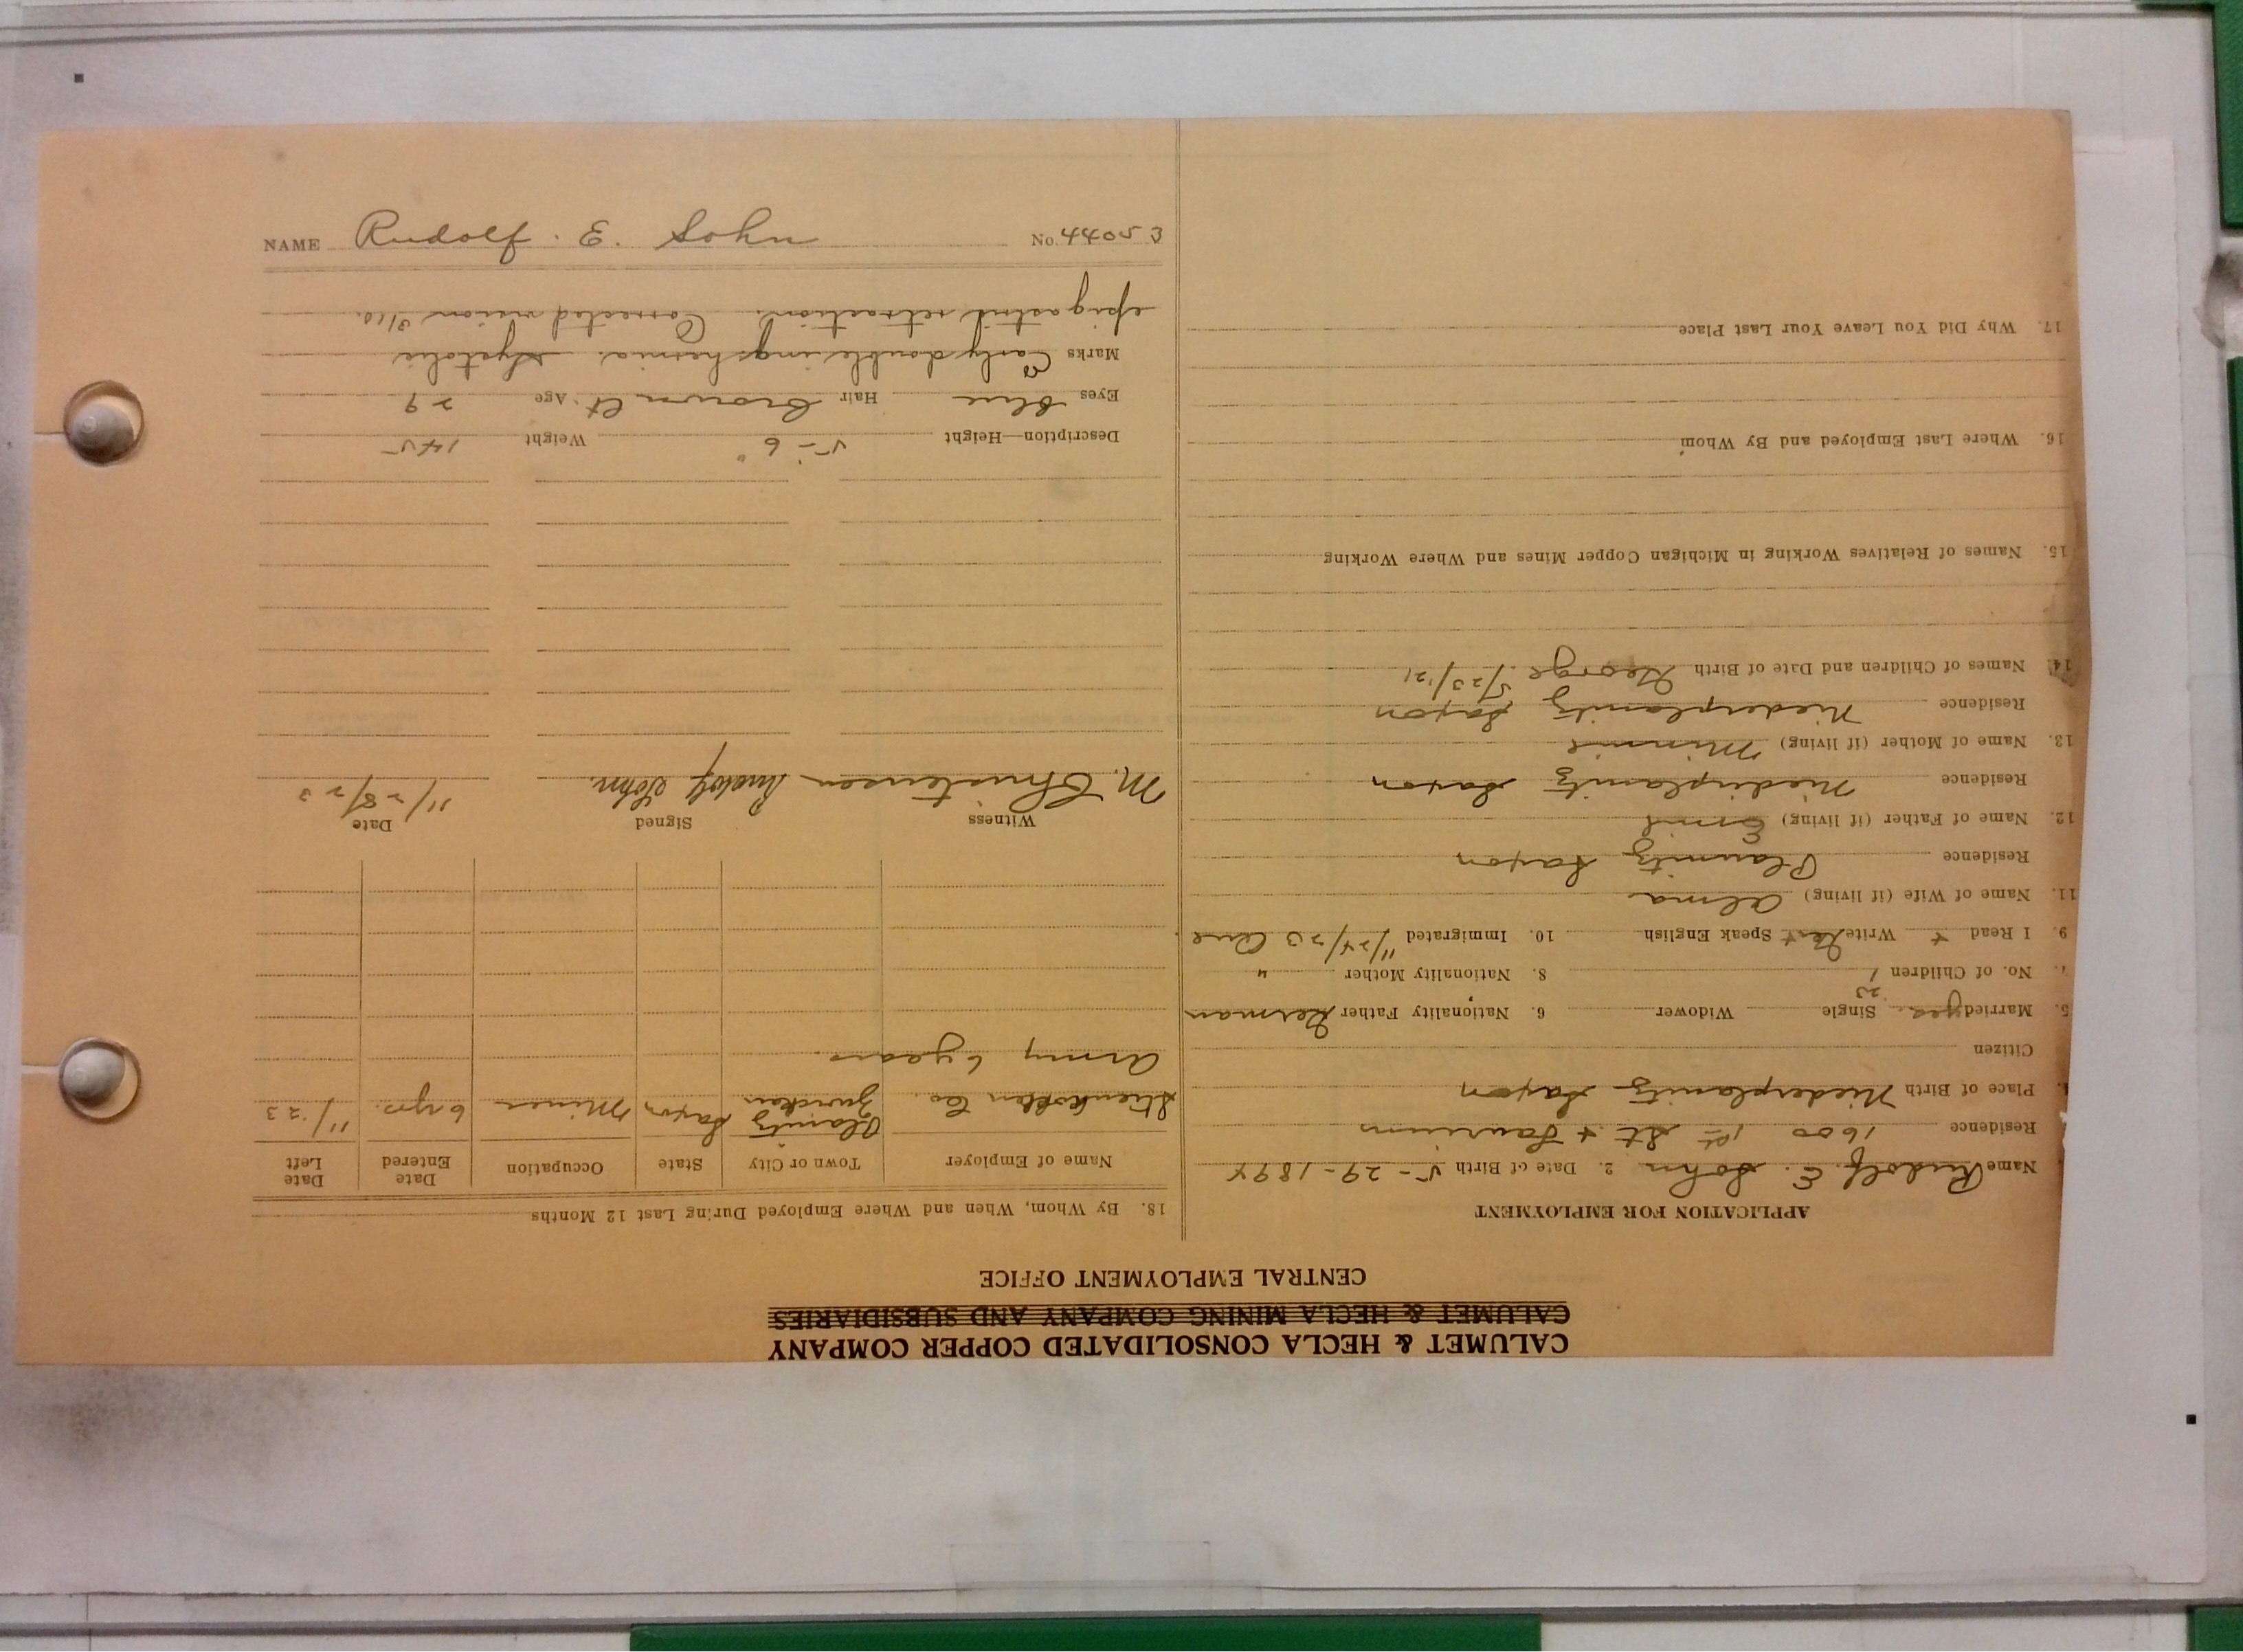 CALUMET & HECLA CONSOLIDATED COPPER COMPANY
CALUMET & HECLA MINING COMPANY AND SUBSIDIARIES
CENTRAL EMPLOYMENT OFFICE
APPLICATION FOR EMPLOYMENT
Name Rudolf E. Sohn 2. Date of Birth 5-29-1894
Residence 1600 1st St + Laurium
Place of Birth Niederplanitz Saxon
Citizen
5. Married yes Single Widower 6. Nationality Father German
23
No. of Children 1 8. Nationality Mother "
9. I Read + Write Speak English 10. Immigrated 11/24/23
11. Name of Wife (if living) Alma
Residence Planitz Saxon
12. Name of Father (if living) Emil
Residence Niederplanitz Saxon
13. Name of Mother (if living) Minnie
Residence Niederplanitz Saxon
14. Names of Children and Date of Birth George 5/23/21
15. Names of Relatives Working in Michigan Copper Mines and Where Working
16. Where Last Employed and By Whom
17. Why Did You Leave Your Last Place
18. By Whom, When and Where Employed During Last 12 Months
Name of Employer Town or City State Occupation Date Entered Date Left
Co. Planitz Zwickau Saxon Miner 6 yrs. 11/23
Army 6 years.
Witness Signed Date
M. Christensen Rudolf Sohn. 11/28/23
Description—Height 5'-6" Weight 145
Eyes blue Hair brown lt. Age 29
Marks Early double ing. hernia. Systolic
epigastric retraction. Corrected vision 8/10.
NAME Rudolf. E. Sohn No. 44053